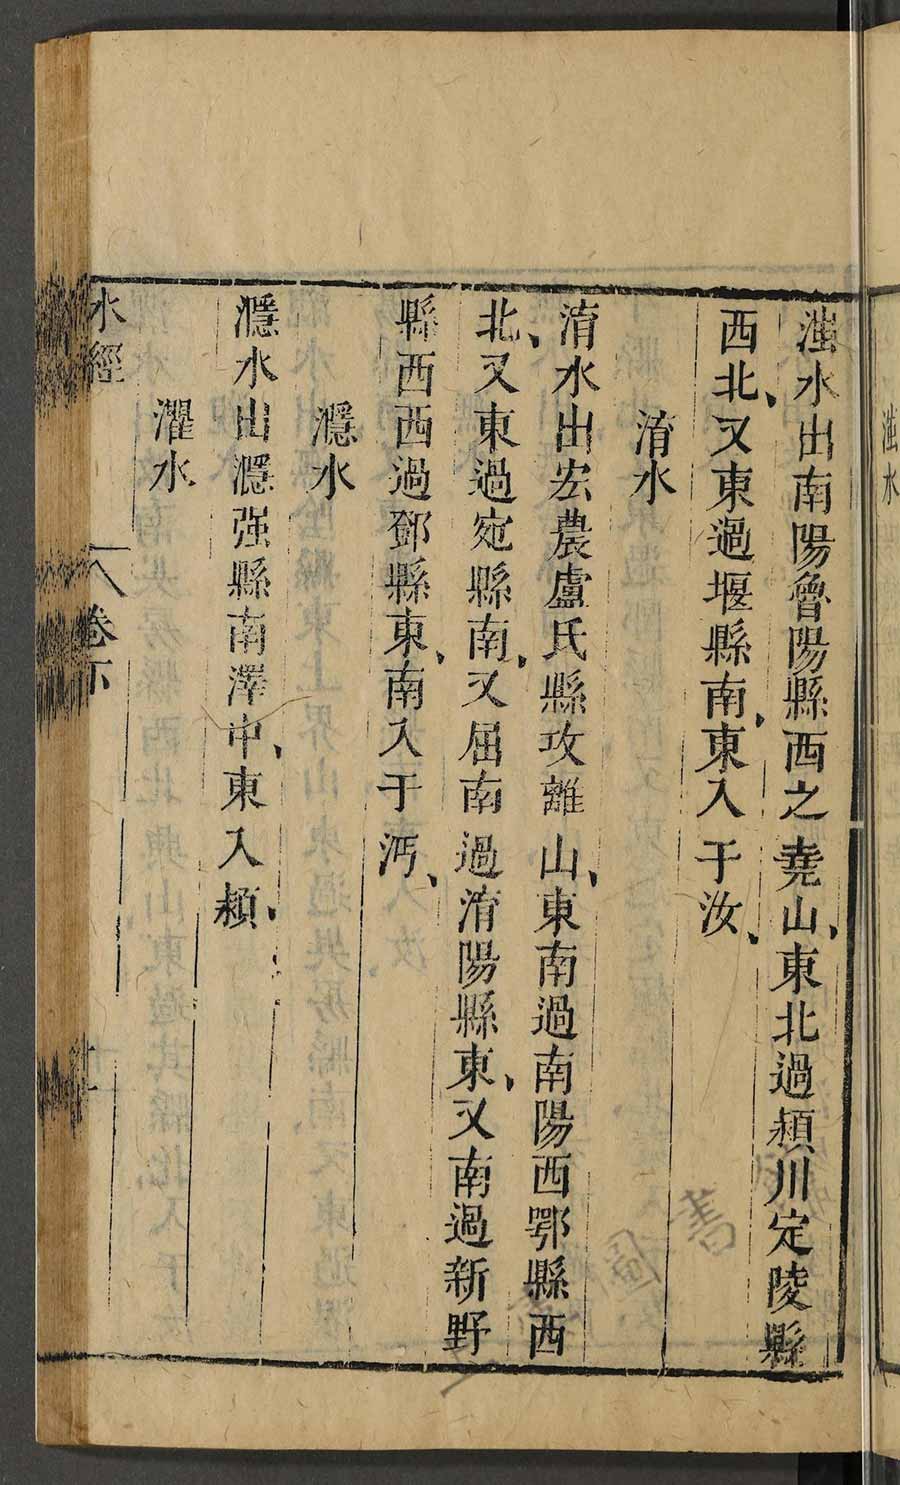 滍水
滍水出南陽魯陽縣西之堯山、東北過潁川定陵縣
西北、又東過堰縣南、東入于汝、
淯水
淯水出宏農盧氏縣攻離山、東南過南陽西鄂縣西
北、又東過宛縣南、又屈南過淯陽縣東、又南過新野
縣西西過鄧縣東、南入于沔、
濦水
濦水出濦强縣南澤中、東入潁、
灈水
水經
卷下
十一